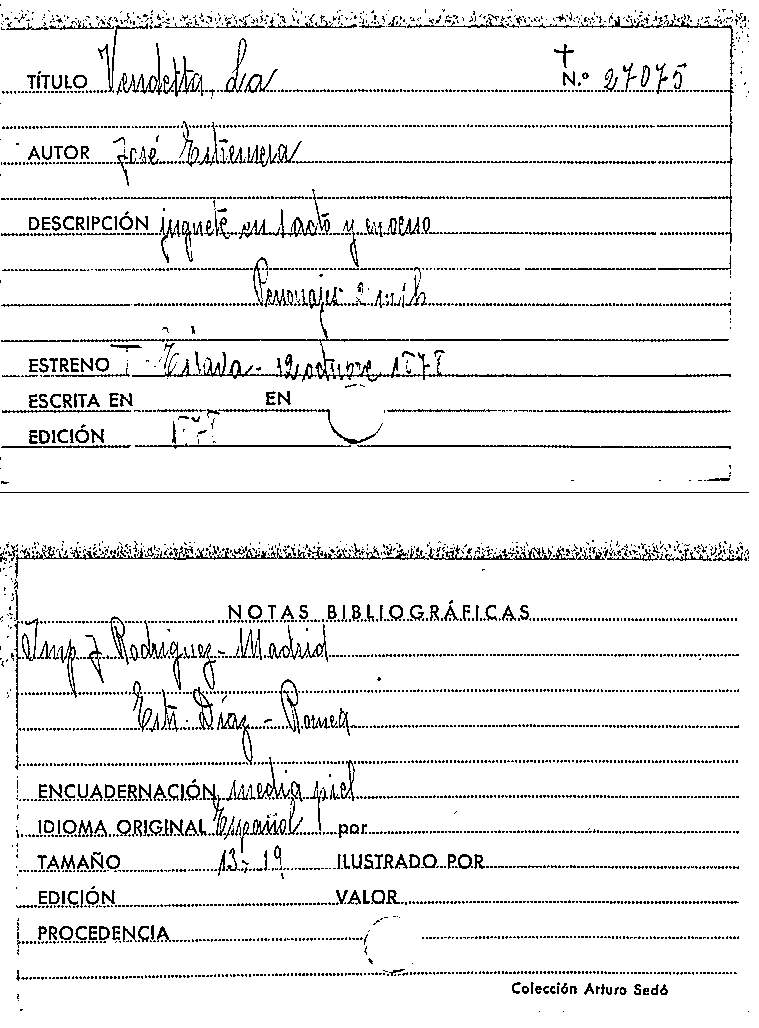 TÍTULO Vendetta, La
N.º 27075
AUTOR José Estremera
DESCRIPCIÓN juguete en 1 acto y en verso
Personajes 2
ESTRENO T. Eslava - 12 octubre 1878
ESCRITA EN EN
EDICIÓN
NOTAS BIBLIOGRÁFICAS
Imp. J Rodriguez - Madrid
Estr. Díaz - Romea
ENCUADERNACIÓN media piel
IDIOMA ORIGINAL Español por
TAMAÑO 13 - 19 ILUSTRADO POR
EDICIÓN VALOR
PROCEDENCIA
Colección Arturo Sedó